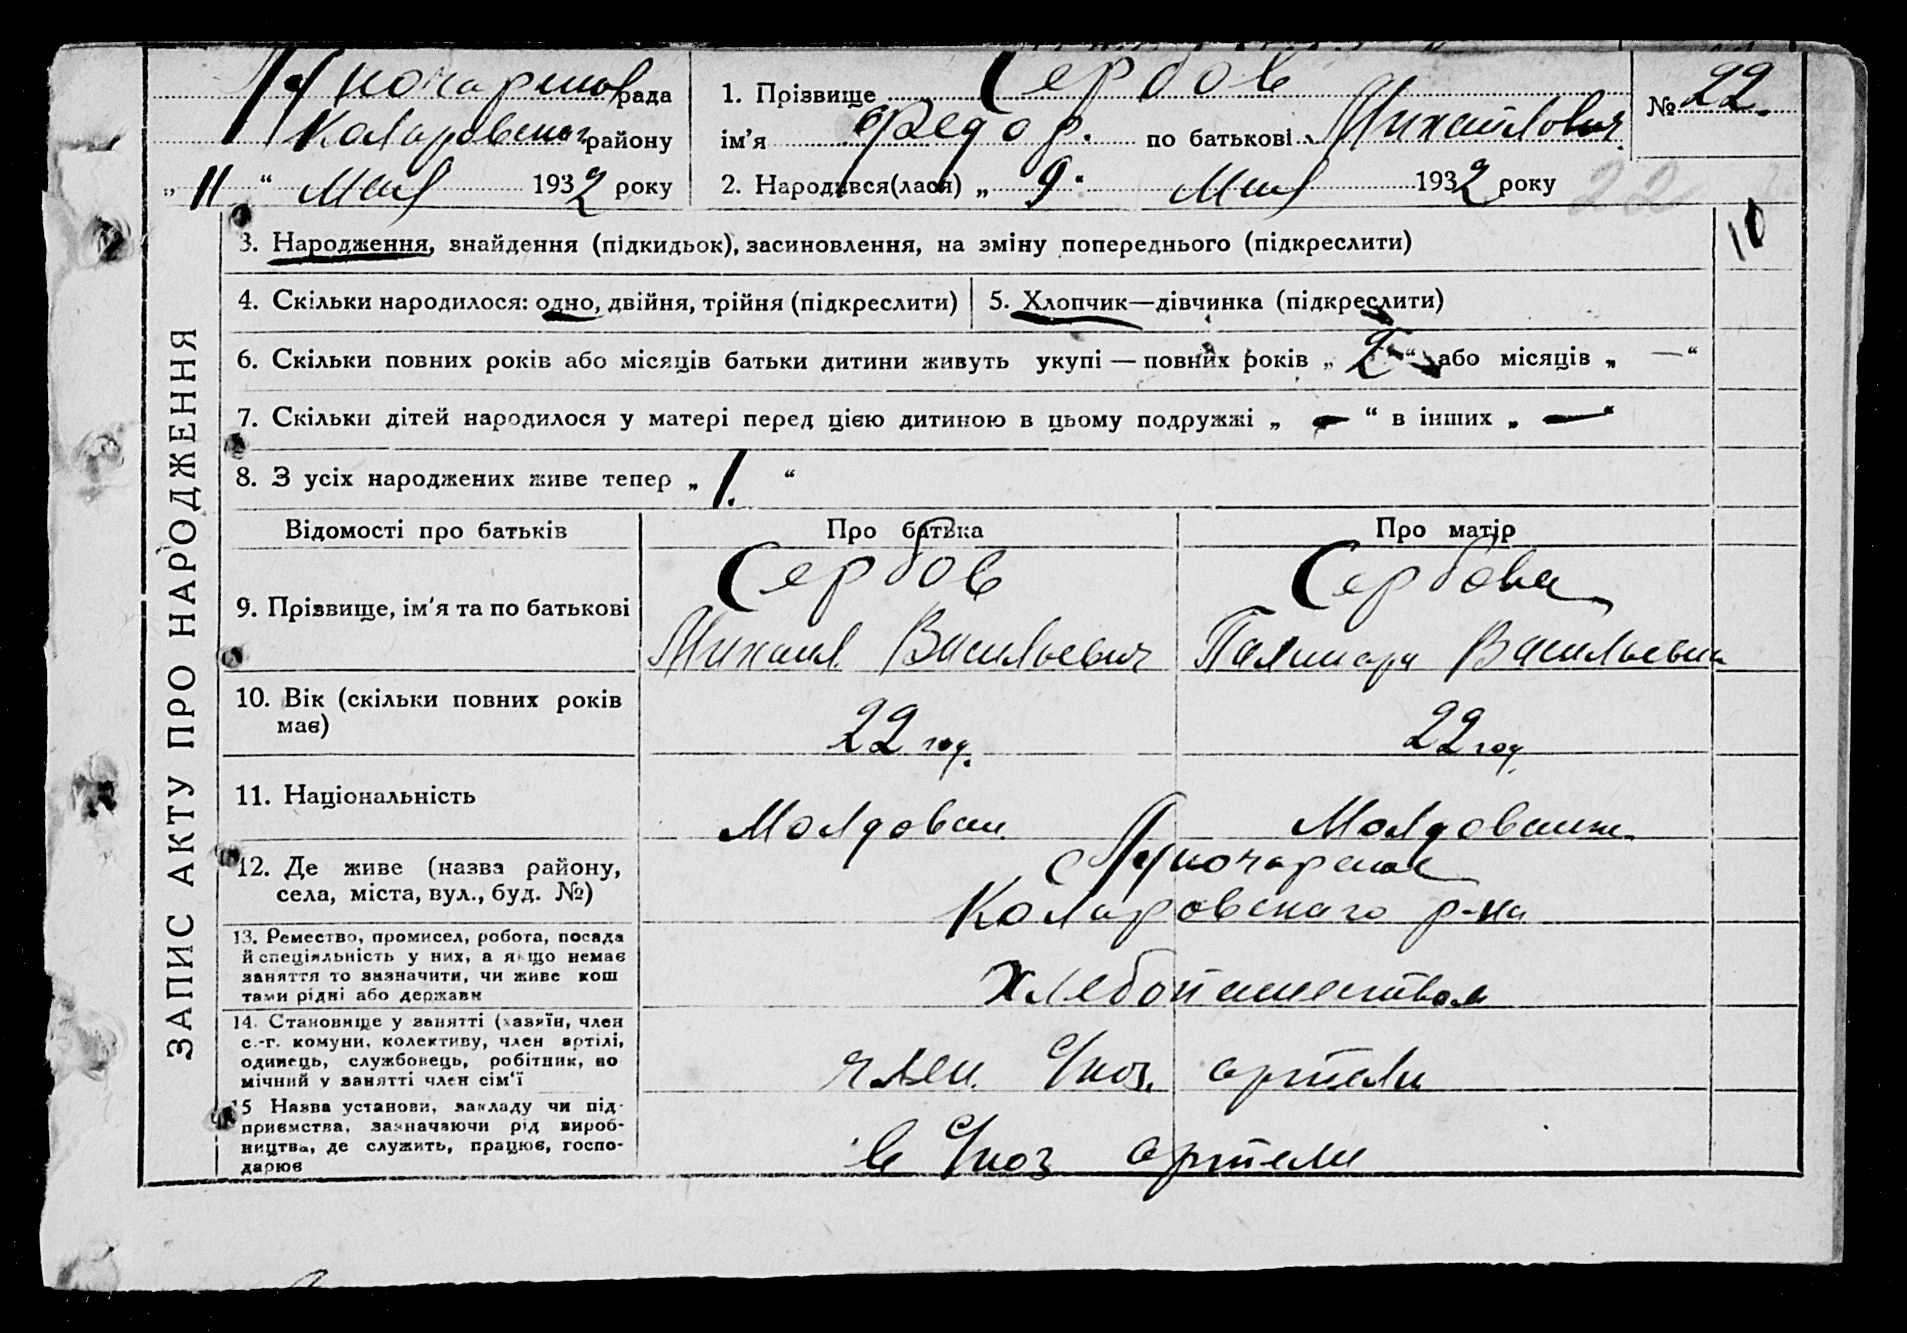 Луночарсков рада
Коларовског району
„ 11 “ Мая 1932 року
1. Прізвище Сербов
ім’я Федор. по батькові Михайлович
2. Народився(лася) „ 9 “ Мая 1932 року
№ 22.
22
10
ЗАПИС АКТУ ПРО НАРОДЖЕННЯ
3. Народження, знайдення (підкидьок), засиновлення, на зміну попереднього (підкреслити)
4. Скільки народилося: одно, двійня, трійня (підкреслити)
5. Хлопчик—дівчинка (підкреслити)
6. Скільки повних років або місяців батьки дитини живуть укупі — повних років „ 2 “ або місяців „ — “
7. Скільки дітей народилося у матері перед цією дитиною в цьому подружжі „ — “ в інших „ — “
8. З усіх народжених живе тепер „ 1. “
Відомості про батьків Про батька Про матір
9. Прізвище, ім’я та по батькові
Сербов
Михаил Васильевич
Сербова
Васильевна
10. Вік (скільки повних років
має)
22 год. 22 год
11. Національність
Молдован Молдованка
12. Де живе (назва району,
села, міста, вул., буд. №)
с Луночарское
Коларовскаго р-на
13. Ремество, промисел, робота, посада
й спеціяльність у них, а якщо немає
заняття то зазначити, чи живе кош
тами рідні або держави
Хлебопашеством
14. Становище у занятті (хазяїн, член
с.-г. комуни, колективу, член артілі,
одинець, службовець, робітник, по
мічний у занятті член сім’ї
член. с/хоз. артели
15 Назва установи, закладу чи під-
приємства, зазначаючи рід вироб-
ництва, де служить, працює, госпо-
дарює
в с/хоз артели